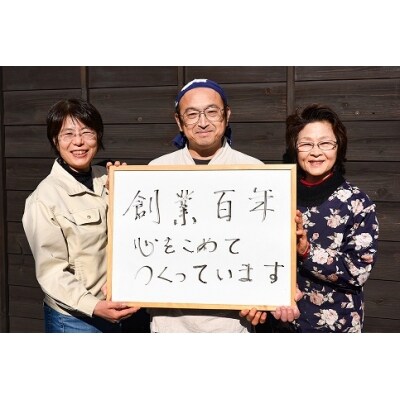 創業百年
心をこめて
つくっています